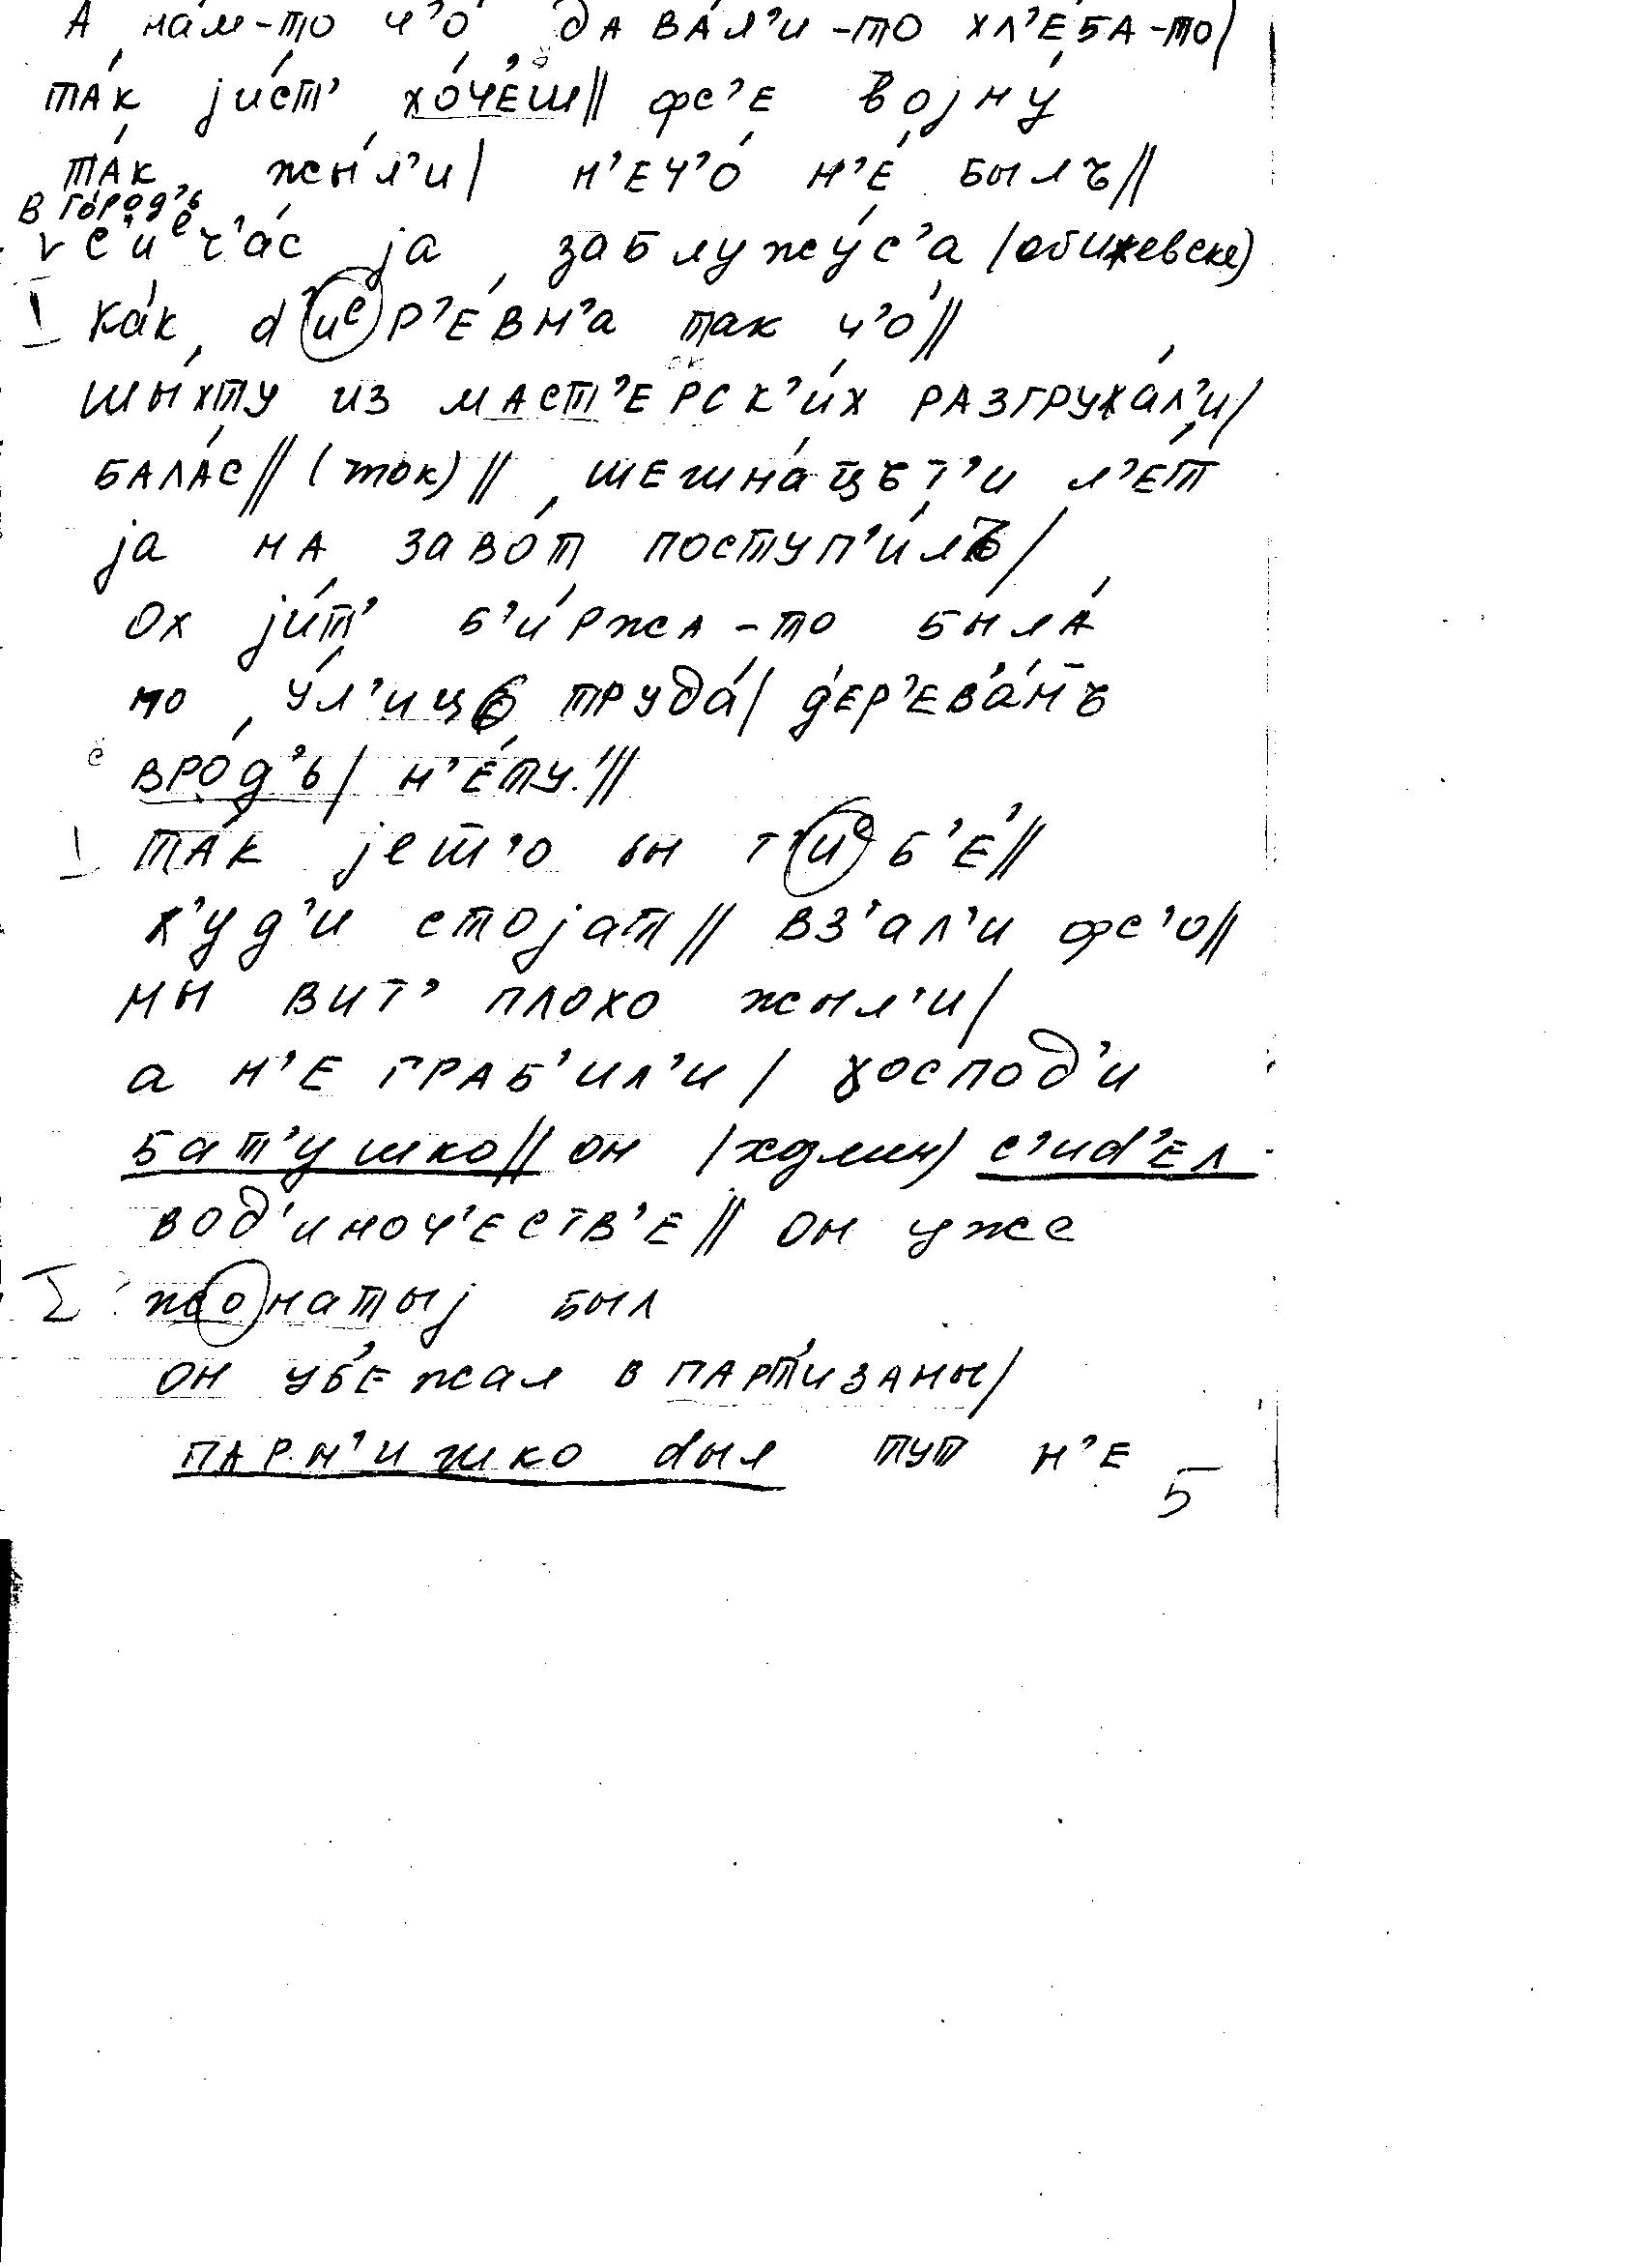 А на́м-то ч’о́ дава́л’и-то хл’е́ба-то/
та́к jи́ст’ хо́че́ш// фс’е војну́
та́к жы́л’и/ н’еч’о́ н’е́ былъ//
в го́род’ь
v с’иᵉч’а́с ја заблужу́с’а /об ижевске)
ка́к д’иᵉр’е́вн’а так ч’о́//
шы́хту из маст’ерск’и́х разгружа́л’и/
бала́с// (ток) // шешна́цът’и л’е́т
ја на заво́т поступ’и́лъ/
ох jи́т’ б’и́ржа-то была́
по у́л’ицъ труда́/ д’ер’ев’а́нъ
вро́д’ь/ н’е́ту!//
та́к jет’о он т’иᵉб’е́//
х’уд’и стојат// вз’ал’и фс’о//
мы вит’ плохо жыл’и/
а н’е граб’ил’и/ ɣоспод’и
бат’ушко// он с’ид’ел
вод’иноч’еств’е// он уже
жонатыј был
он уб’ежал в парт’изаны/
парн’ишко был тут н’е
5